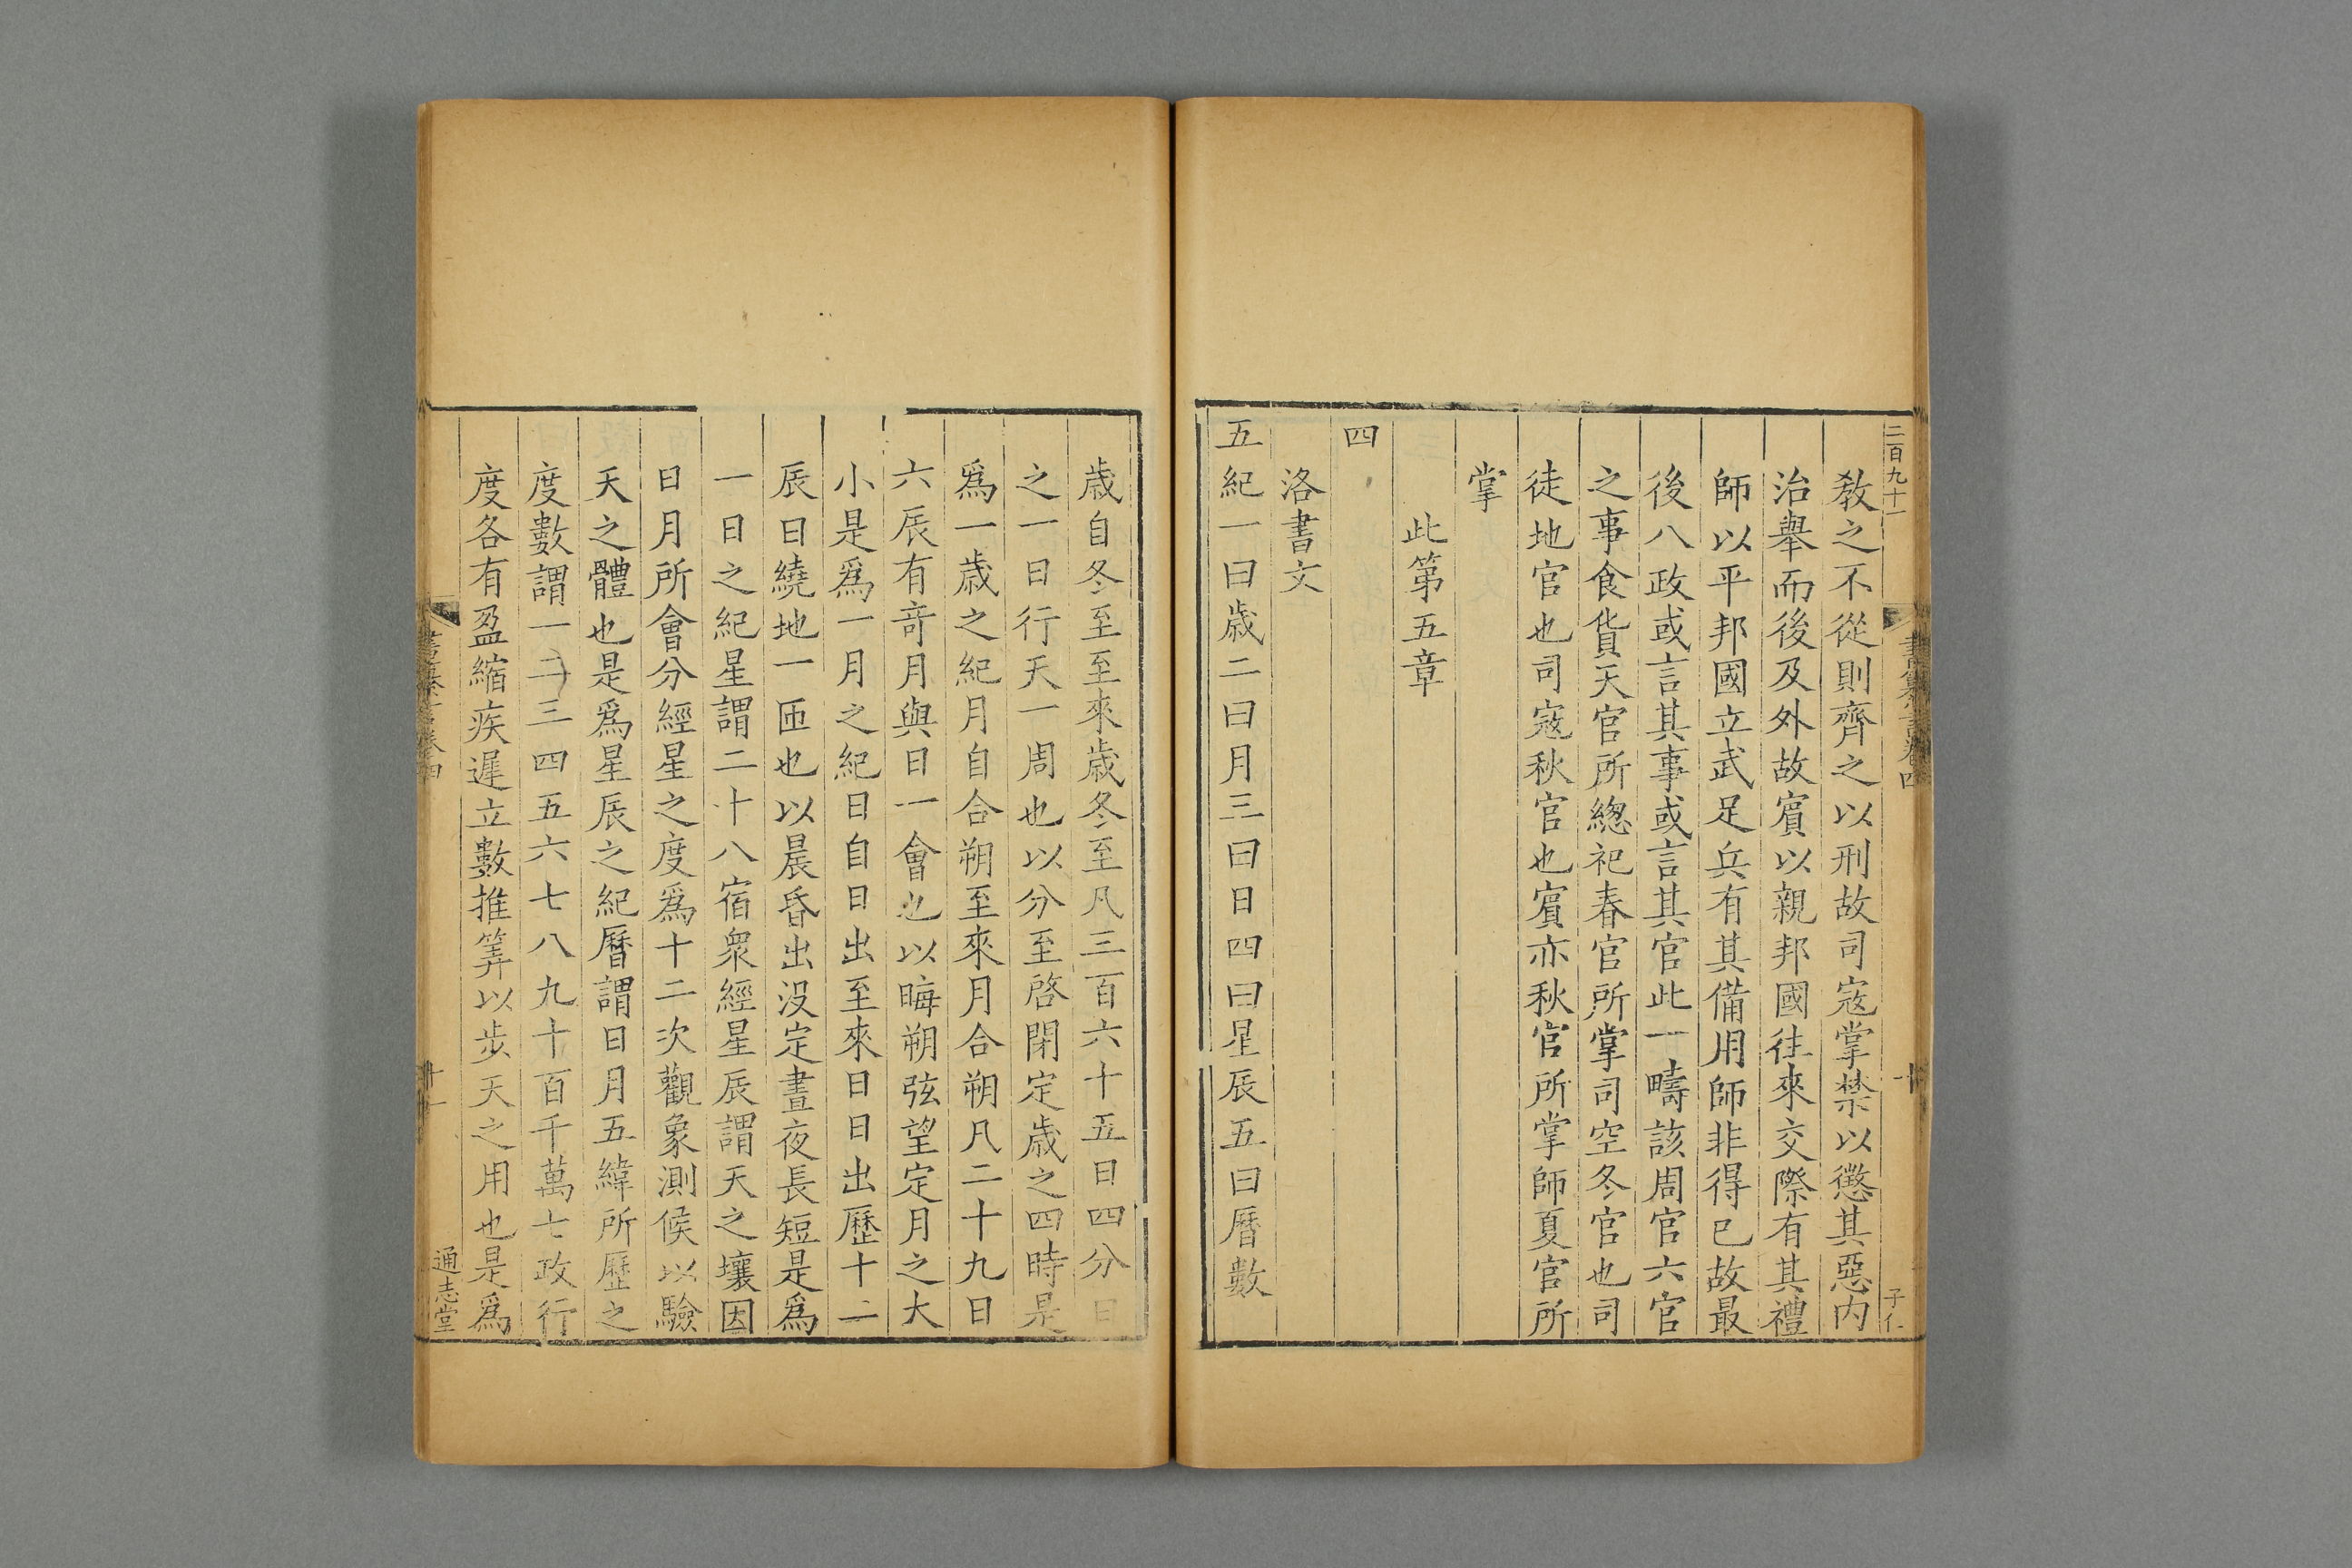 二百九十一
書纂言卷四
十
子仁
敎之不從則齊之以刑故司寇掌禁以懲其惡内
治舉而後及外故賔以親邦國往來交際有其禮
師以平邦國立武足兵有其備用師非得已故最
後八政或言其事或言其官此一疇該周官六官
之事食貨天官所緫祀春官所掌司空冬官也司
徒地官也司寇秋官也賔亦秋官所掌師夏官所
掌
此第五章
四
洛書文
五紀一曰歲二曰月三曰日四曰星辰五曰曆數
歲自冬至至來歲冬至凡三百六十五日四分日
之一日行天一周也以分至啓閉定歲之四時是
爲一歲之紀月自合朔至來月合朔凡二十九日
六辰有竒月與日一會也以晦朔弦望定月之大
小是爲一月之紀日自日出至來日日出歷十二
辰日繞地一匝也以晨昏出没定晝夜長短是爲
一日之紀星謂二十八宿衆經星辰謂天之壤因
日月所會分經星之度爲十二次觀象測候以驗
天之體也是爲星辰之紀曆謂日月五緯所歷之
度數謂一二三四五六七八九十百千萬七政行
度各有盈縮疾遲立數推筭以步天之用也是爲
書纂言卷四
十一
通志堂